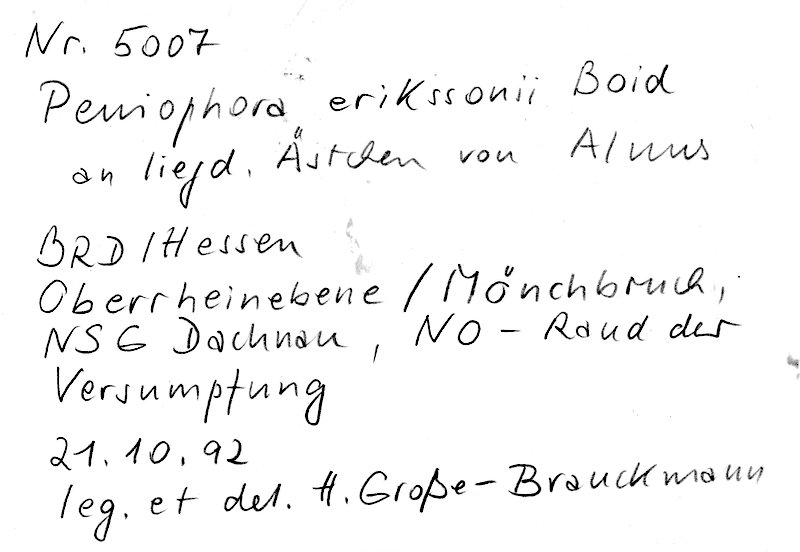 Nr. 5007
Peniophora erikssonii Boid
an liegd. Ästchen von Alnus
BRD/Hessen
Oberrheinebene / Mönchbruch,
NSG Dachnau, NO - Rand der
Versumpfung
21.10.92
leg. et det. H. Große-Brauckmann